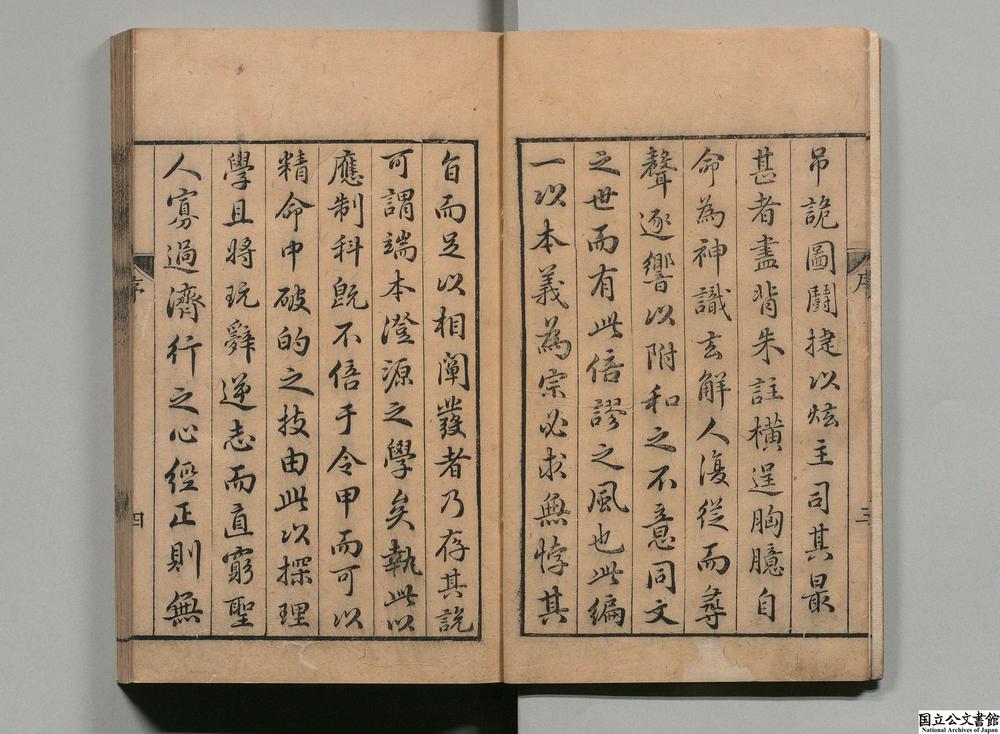 序
三
吊詭圖鬪捷以炫主司其最
甚者盡背朱註橫逞胸臆自
命為神識玄解人復從而尋
聲逐響以附和之不意同文
之世而有此倍謬之風也此編
一以本義為宗必求無悖其
旨而足以相闡發者乃存其說
可謂端本澄源之學矣執此以
應制科旣不倍乎令甲而可以
精命中破的之技由此以探理
學且將玩辭逆志而直窮聖
人寡過濟行之心經正則無
序
四
国立公文書館
National Archives of Japan